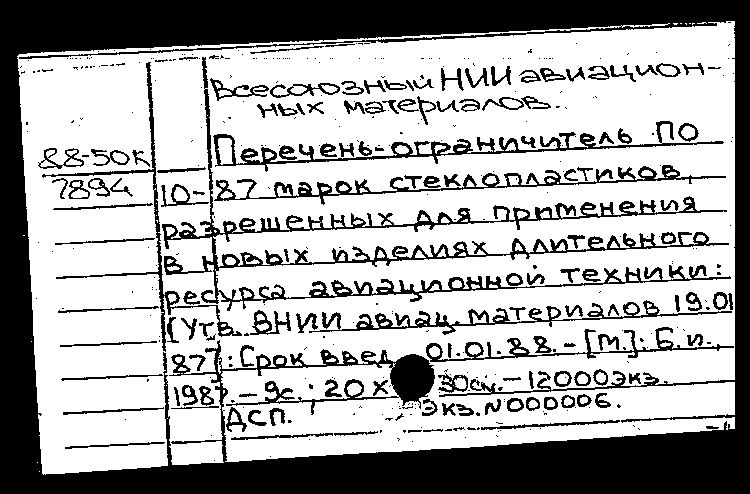 Всесоюзный НИИ авиацион-
ных материалов.
88-50к Перечень-ограничитель ПО
7894 10-87 марок стеклопластиков,
разрешенных для применения
в новых изделиях длительного
ресурса авиационной техники:
[Утв. ВНИИ авиац. материалов 19.01
87]: Срок введ. 01.01.88.-[М.]: Б.и.,
1987.-9с.; 20х 30см.-12000экз.
ДСП. Экз.N000006.